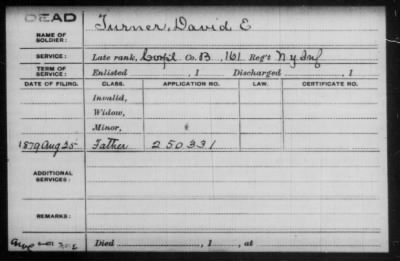 DEAD
NAME OF SOLDIER: Turner, David E
SERVICE: Late rank, Corp'l Co. B, 161 Reg't N Y Inf
TERM OF SERVICE: Enlisted , 1 Discharged , 1
DATE OF FILING. CLASS. APPLICATION NO. LAW. CERTIFICATE NO.
Invalid,
Widow,
Minor,
1879 Aug 25 Father 250331
ADDITIONAL SERVICES:
REMARKS:
Died , 1 , at